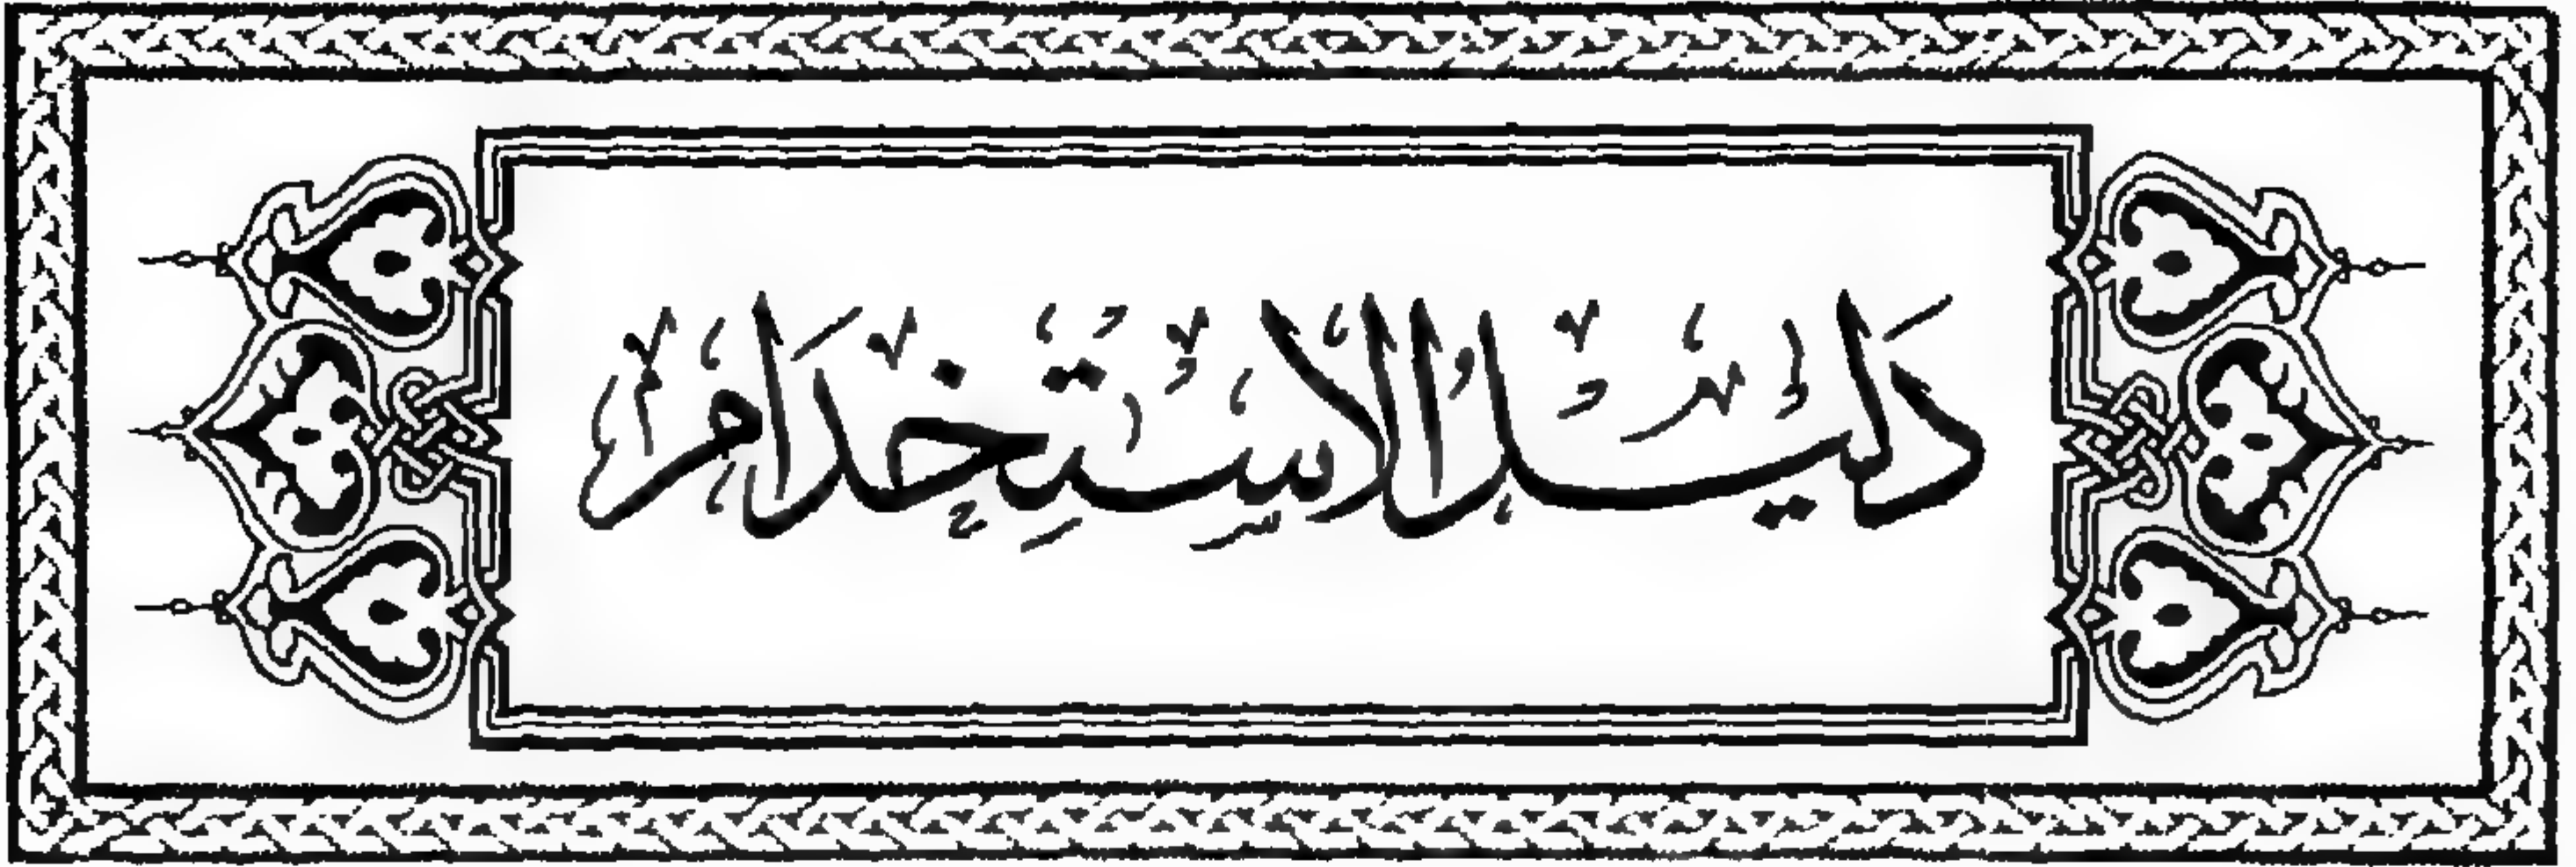 دَلِيلُ الاسْتِخْدَامْ